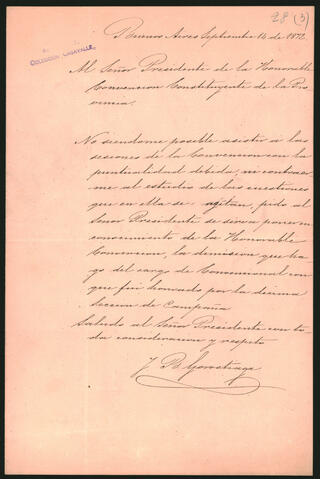 28 (3)
COLECCION CASAVALLE
Buenos Aires Septiembre 14 de 1872.
Al Señor Presidente de la Honorable
Convencion Constituyente de la Pro
vincia.
No siendome posible asistir a las
sesiones de la Convencion con la
puntualidad debida, ni contraer
me al estudio de las cuestiones
que en ella se agitan, pido al
Señor Presidente se sirva poner en
conocimiento de la Honorable
Convencion, la dimision que ha
go del cargo de Convencional con
que fui honrado por la decima
Seccion de Campaña
Saludo al Señor Presidente con to
da consideracion y respeto
J B Gorostiaga